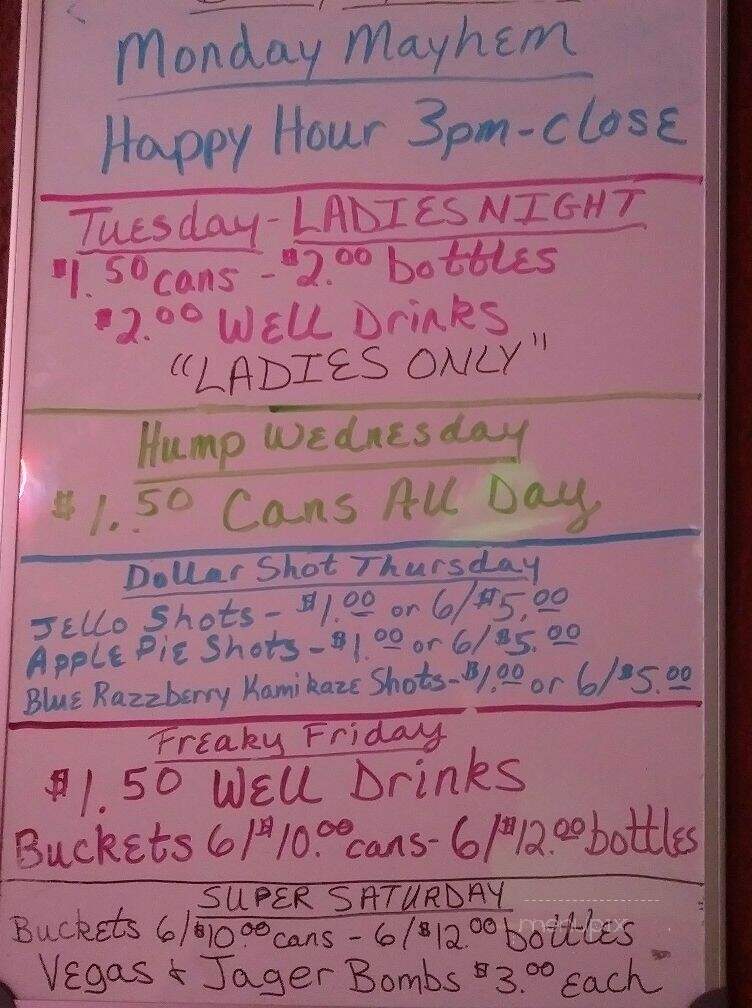 Monday Mayhem
Happy Hour 3pm-close
Tuesday - LADIES NIGHT
$1.50 cans - $2.00 bottles
$2.00 Well Drinks
"LADIES ONLY"
Hump Wednesday
$1.50 Cans All Day
Dollar Shot Thursday
Jello Shots - $1.00 or 6/$5.00
Apple Pie Shots - $1.00 or 6/$5.00
Blue Razzberry Kamikaze Shots - $1.00 or 6/$5.00
Freaky Friday
$1.50 Well Drinks
Buckets 6/$10.00 cans - 6/$12.00 bottles
SUPER SATURDAY
Buckets 6/$10.00 cans - 6/$12.00 bottles
Vegas & Jager Bombs $3.00 each
menupix